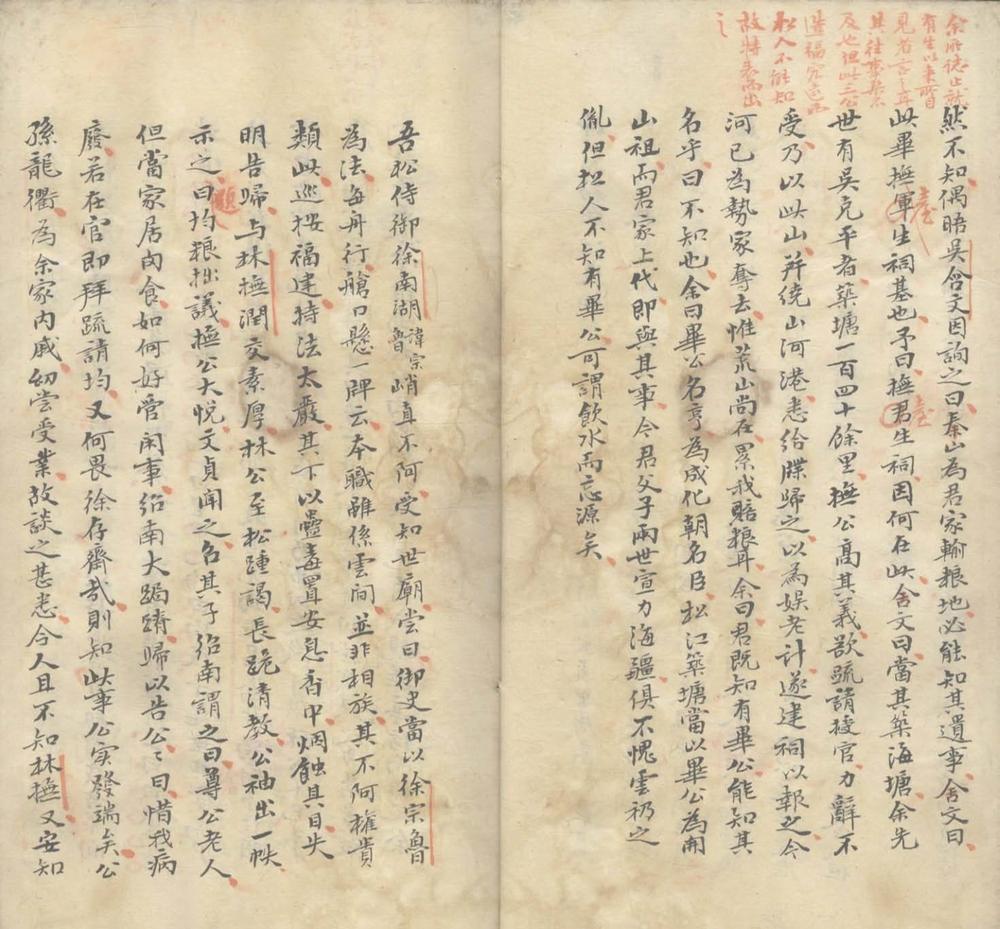 余所德止就
有生以来所目
見者言之耳
其往事不
及也但此三公
造福
松人不能知
故特表而出
之
然不知偶晤吳舍文因詢之曰秦山為君家輸粮地必能知其遺事舍文曰
此畢撫軍生祠基也予曰撫君生祠因何在此舍文曰當其築海塘余先
臺
臺
世有吳克平者築塘一百四十餘里撫公高其義欲疏請授官力辭不
受乃以此山并繞山河港悉給牒歸之以為娛老計遂建祠以報之今
河已為勢家奪去惟荒山尚在累我賠粮耳余曰君既知有畢公能知其
名乎曰不知也余曰畢公名亨為成化朝名臣松江築塘當以畢公為開
山祖而君家上代即與其事今君父子兩世宣力海疆俱不愧雲礽之
胤但松人不知有畢公可謂飲水而忘源矣
吾松侍御徐南湖諱宗魯峭直不阿受知世廟嘗曰御史當以徐宗魯
為法每舟行艙口懸一牌云本職雖係雲间並非相族其不阿權貴
類此巡按福建持法太嚴其下以蠱毒置安息香中烟蝕其目失
明告歸与林撫潤交素厚林公至松踵謁長跪清教公袖出一帙
題
示之曰均粮拙議撫公大悅文貞聞之名其子绍南謂之曰尊公老人
但當家居肉食如何好管闲事绍南大跼蹐歸以告公公曰惜我病
廢若在官即拜疏請均又何畏徐存齋哉則知此事公实發端矣公
孫龍衢為余家内戚幼嘗受業故談之甚悉今人且不知林撫又安知